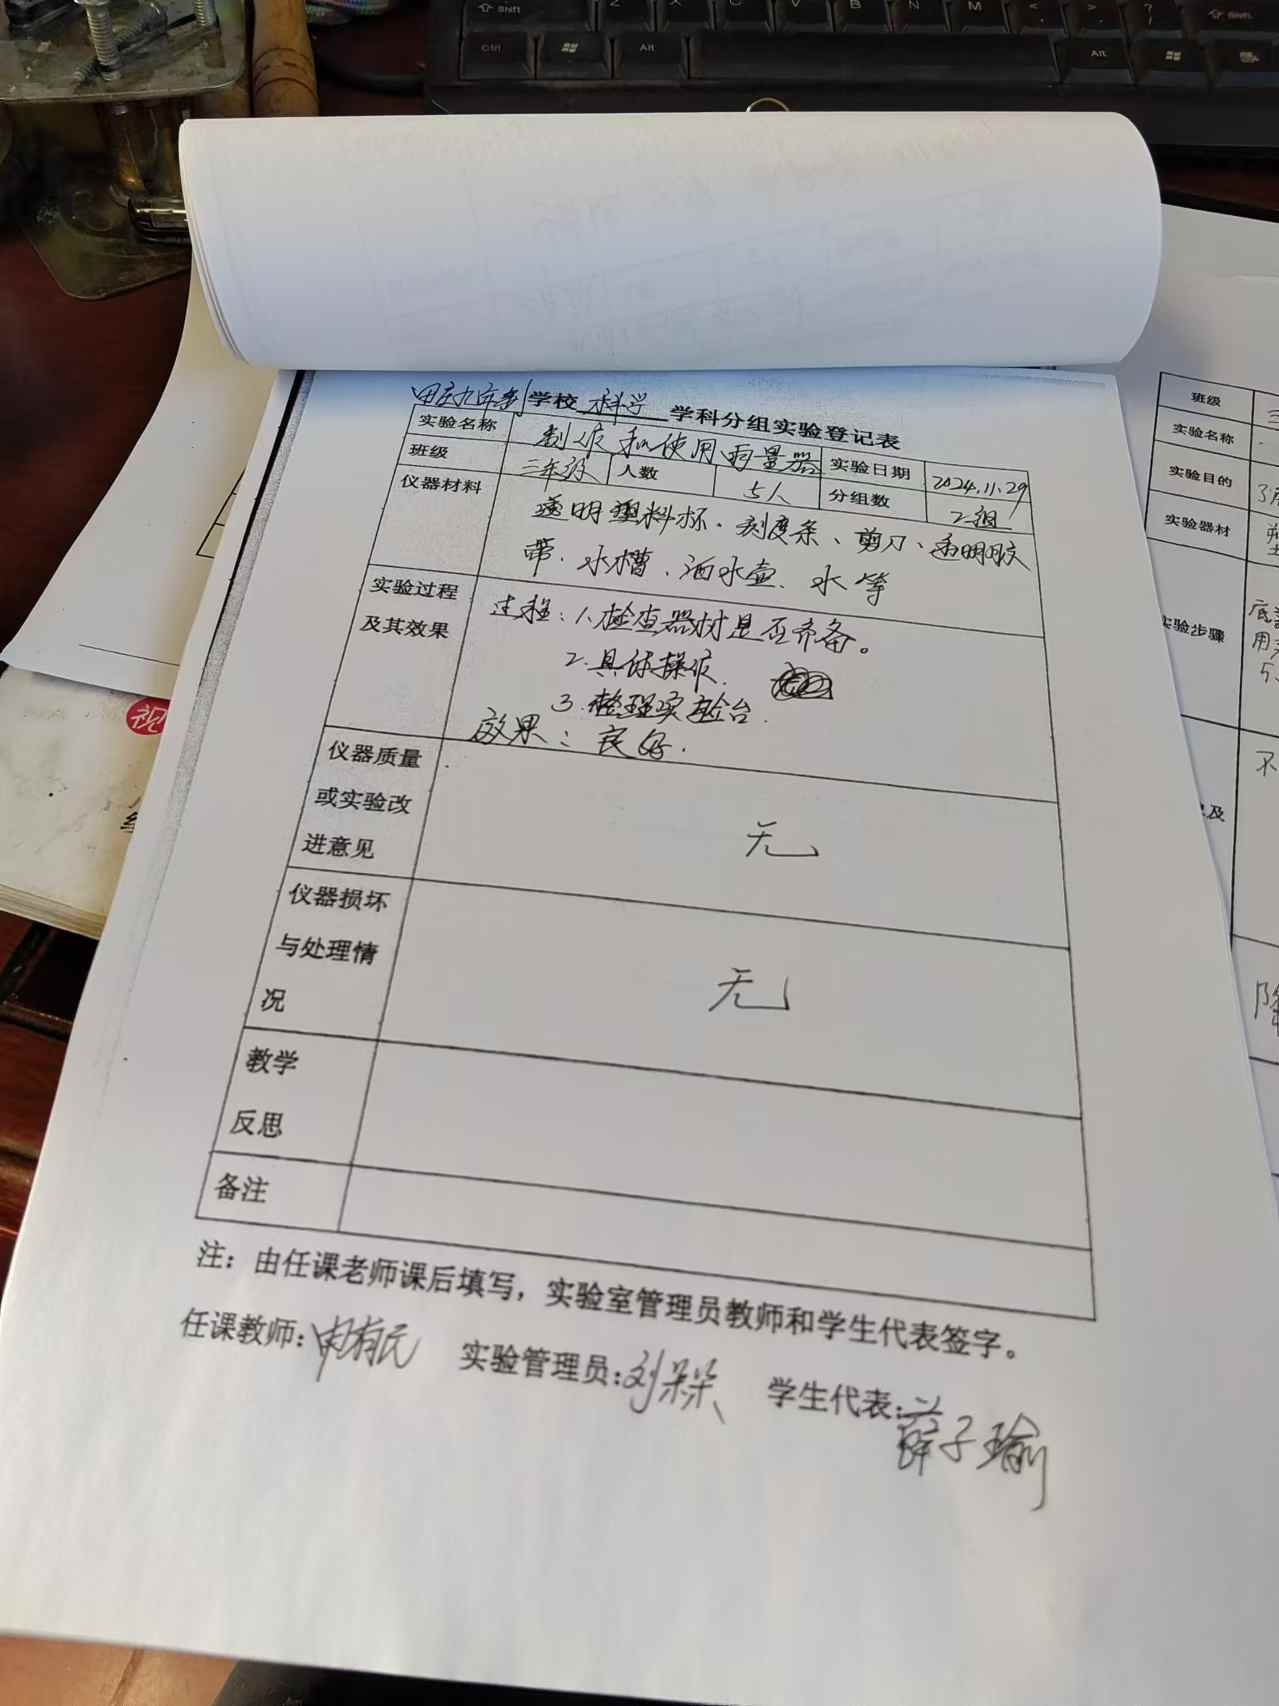 Shift Z X C V B N M Shift
Ctrl Alt Alt
九年制学校 科学 学科分组实验登记表
实验名称 制作和使用雨量器 实验日期 2024.11.29
班级 三年级 人数 5人 分组数 2组
仪器材料 透明塑料杯、刻度条、剪刀、透明胶
带、水槽、洒水壶、水等
实验过程
及其效果
过程：1.检查器材是否齐备。
2.具体操作.
3.整理实验台.
效果：良好.
仪器质量
或实验改
进意见
无
仪器损坏
与处理情
况
无
教学
反思
备注
注：由任课老师课后填写，实验室管理员教师和学生代表签字。
任课教师:申有元 实验管理员:刘 学生代表:薛子瑜
班级 三
实验名称
实验目的
实验器材
实验步骤
底
用
5.
及
不
祝